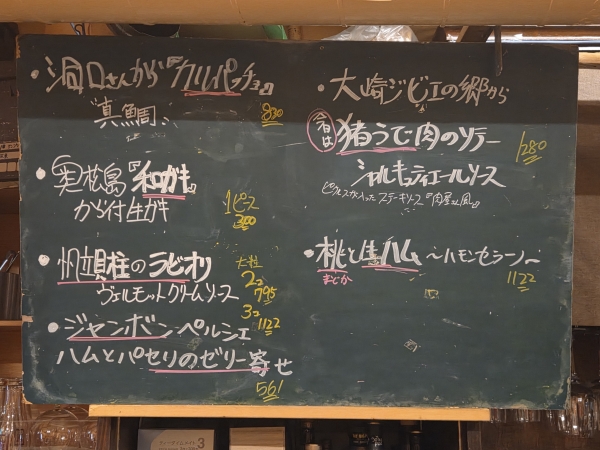 ・洞口さんから『カルパッチョ』
"真鯛"
830
・奥松島『和ガキ』
から付生ガキ
1ピース
300
・帆立貝柱のラビオリ
ヴェルモットクリームソース
大粒
2コ
795
3コ
1122
・ジャンボンペルシエ
ハムとパセリのゼリー寄せ
561
・大崎ジビエの郷から
今日は
猪うで肉のソテー
1280
シャルキュティエールソース
ピクルスが入ったステーキソース『肉屋さん風』
・桃と生ハム 〜ハモンセラーノ〜
まどか
1122